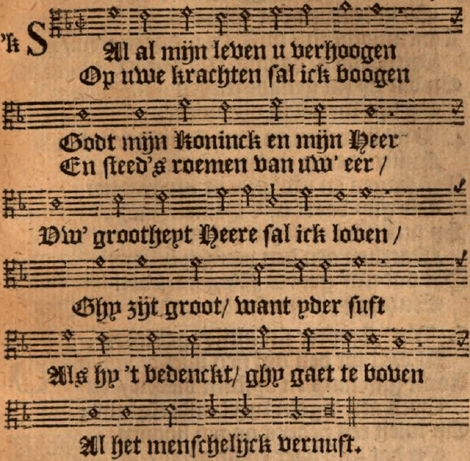 'k SAl al mijn leven u verhoogen
Op uwe krachten sal ick boogen
Godt mijn Koninck en mijn Heer
En steed's roemen van uw' eer /
Uw' grootheyt Heere sal ick loven /
Ghy zijt groot / want yder suft
Als hy 't bedenckt / ghy gaet te boven
Al het menschelijck vernuft.